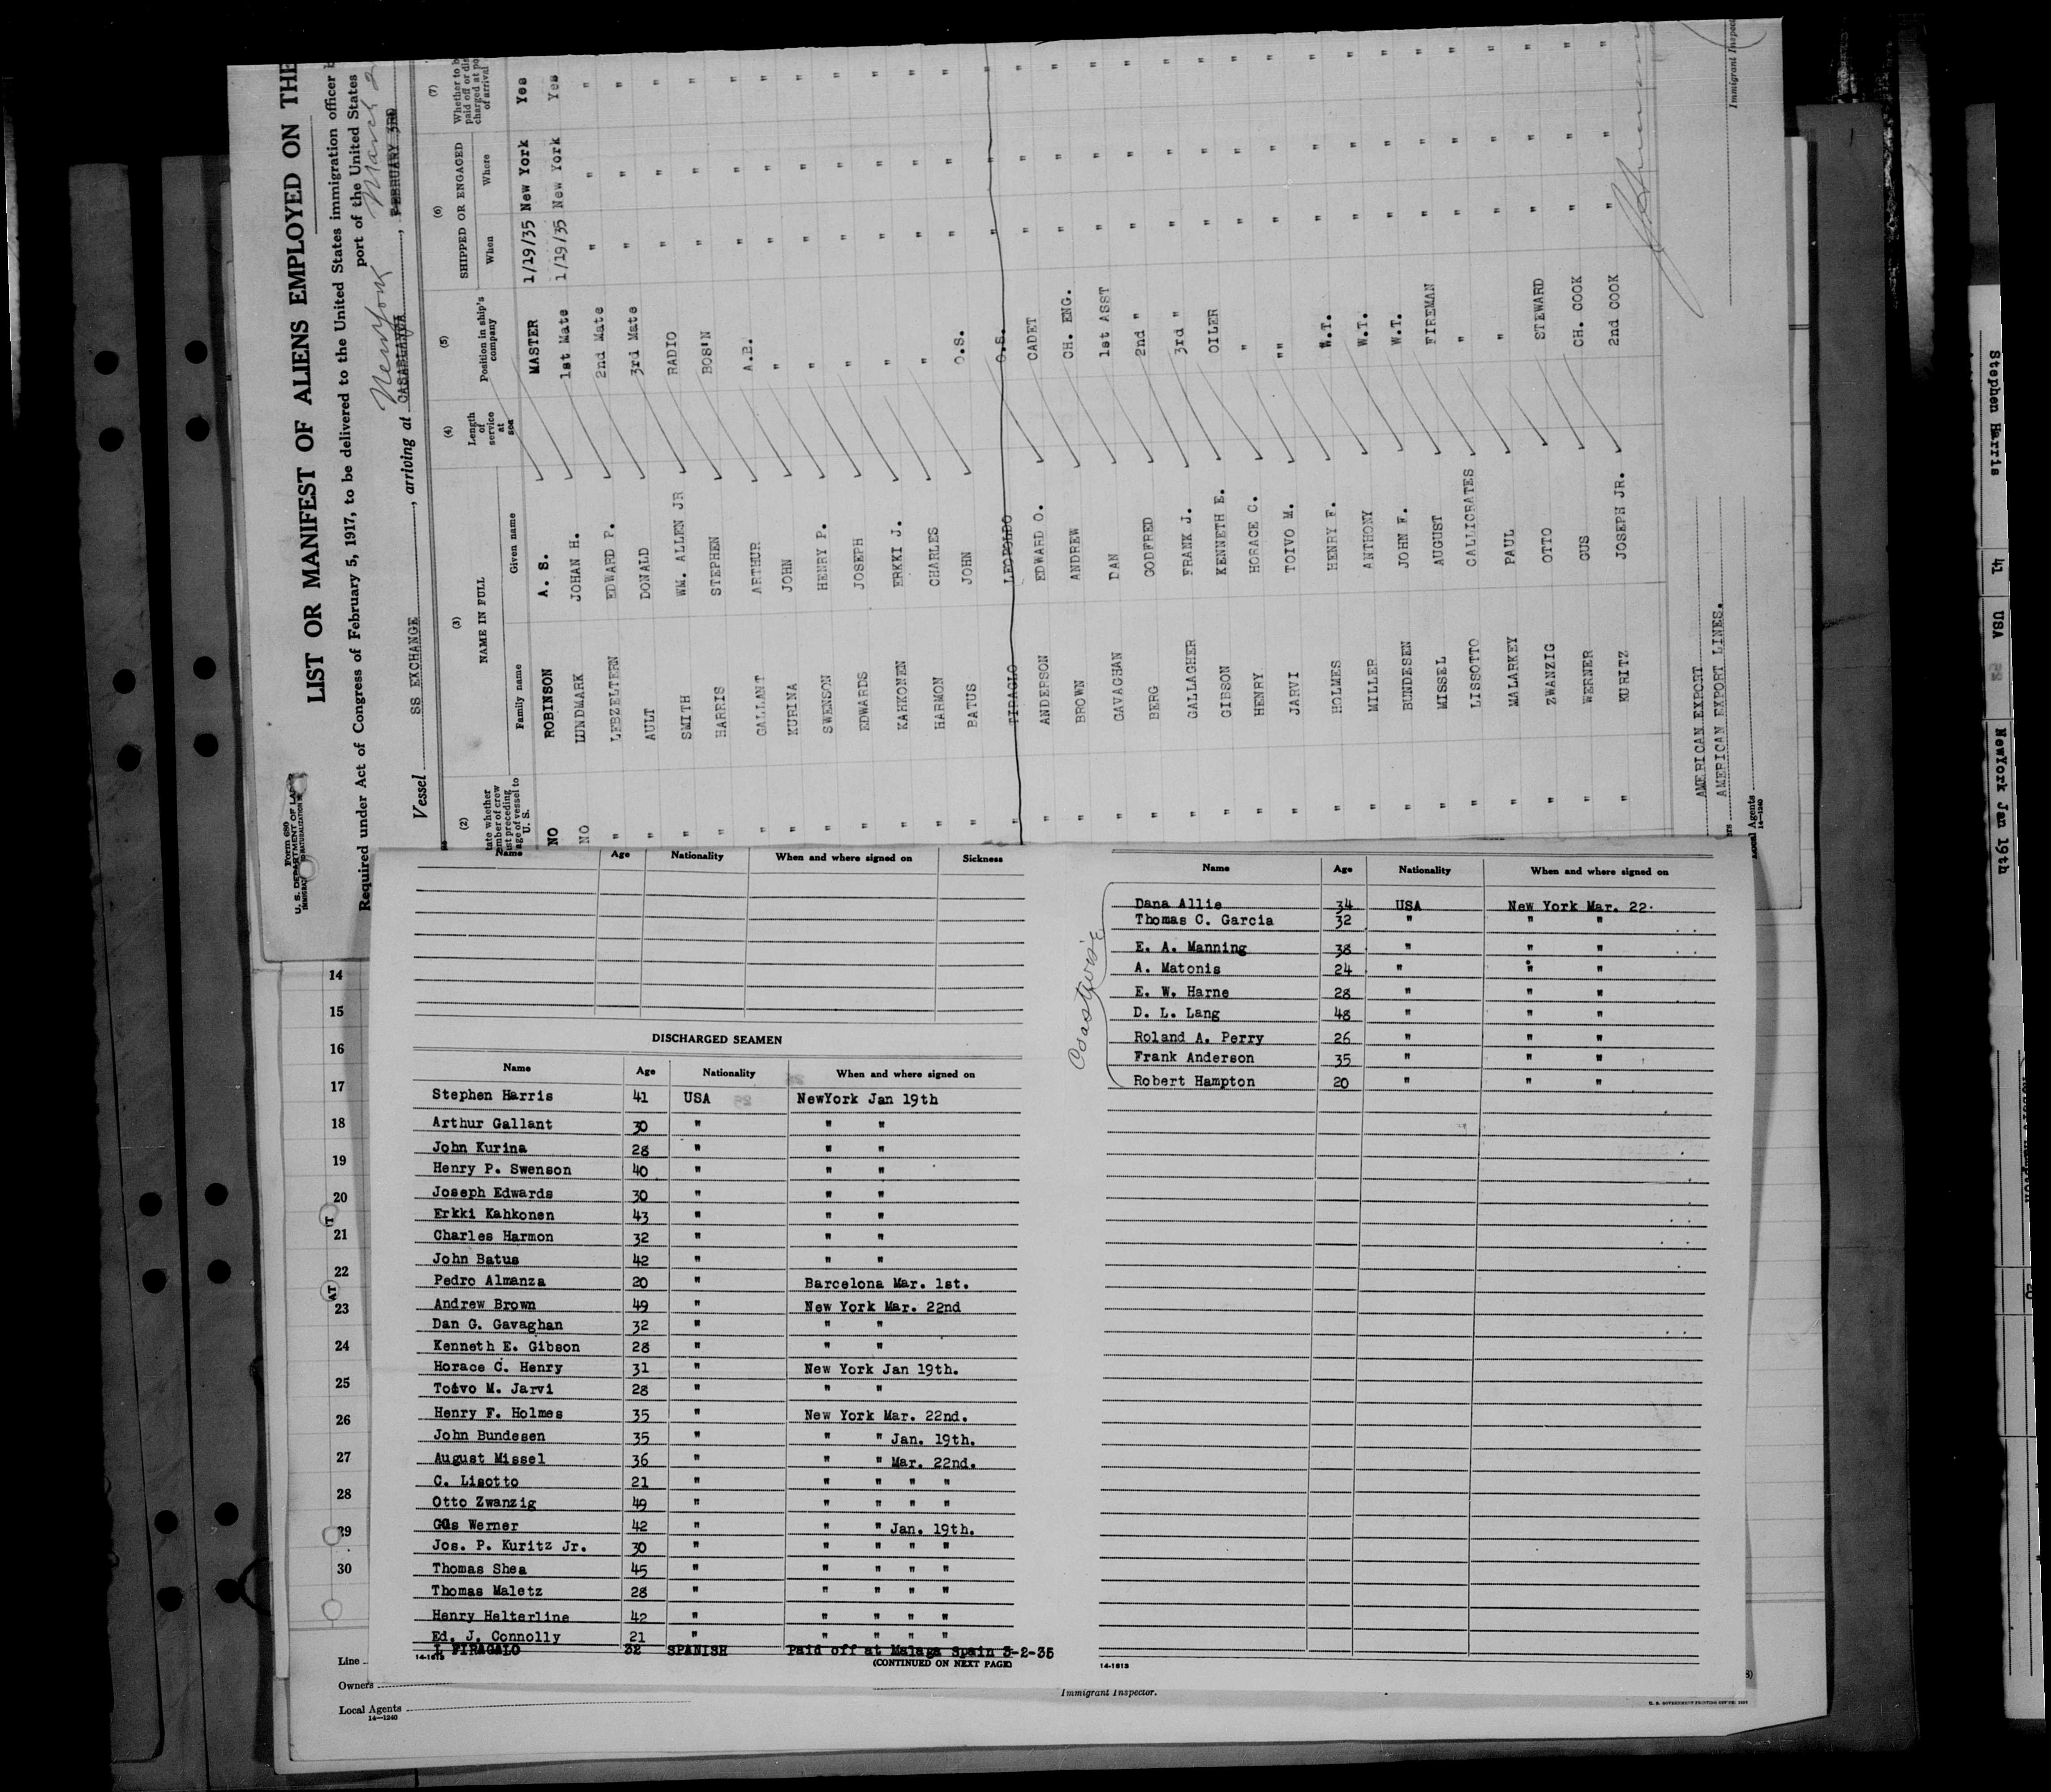 U. S. DEPARTMENT OF LABOR
Form 680
LIST OR MANIFEST OF ALIENS EMPLOYED ON THE
Required under Act of Congress of February 5, 1917, to be delivered to the United States immigration officer
port of the United States
Vessel SS EXCHANGE, arriving at CASABLANCA New York, FEBRUARY 3RD March
(2) (3) (4) (5) (6) (7)
NAME IN FULL
Length of service at sea
Position in ship's company
SHIPPED OR ENGAGED
Family name Given name When Where
NO ROBINSON A. S. MASTER 1/19/35 New York Yes
NO LUNDMARK JOHAN H. 1st Mate 1/19/35 New York Yes
" LEBZELTERN EDWARD P. 2nd Mate " " "
" AULT DONALD 3rd Mate " " "
" SMITH WM. ALLEN JR RADIO " " "
" HARRIS STEPHEN BOS'N " " "
" GALLANT ARTHUR A.B. " " "
" KURINA JOHN " " " "
" SWENSON HENRY P. " " " "
" EDWARDS JOSEPH " " " "
" KAHKONEN ERKKI J. " " " "
" HARMON CHARLES " " " "
" BATUS JOHN O.S. " " "
" FIRAGLO LEOPOLDO O.S. " " "
" ANDERSON EDWARD O. CADET " " "
" BROWN ANDREW CH. ENG. " " "
" GAVAGHAN DAN 1st ASST " " "
" BERG GODFRED 2nd " " " "
" GALLAGHER FRANK J. 3rd " " " "
" GIBSON KENNETH E. OILER " " "
" HENRY HORACE C. " " " "
" JARVI TOIVO M. "" " " "
" HOLMES HENRY F. W.T. " " "
" MILLER ANTHONY W.T. " " "
" BUNDESEN JOHN F. W.T. " " "
" MISSEL AUGUST FIREMAN " " "
" LISSOTTO CALLICRATES " " " "
" MALARKEY PAUL " " " "
" ZWANZIG OTTO STEWARD " " "
" WERNER GUS CH. COOK " " "
" KURITZ JOSEPH JR. 2nd COOK " " "
AMERICAN EXPORT
AMERICAN EXPORT LINES.
Local Agents
14-1240
Immigrant Inspec
Name Age Nationality When and where signed on Sickness
DISCHARGED SEAMEN
Name Age Nationality When and where signed on
Stephen Harris 41 USA NewYork Jan 19th
Arthur Gallant 30 " " "
John Kurina 28 " " "
Henry P. Swenson 40 " " "
Joseph Edwards 30 " " "
Erkki Kahkonen 43 " " "
Charles Harmon 32 " " "
John Batus 42 " " "
Pedro Almanza 20 " Barcelona Mar. 1st.
Andrew Brown 49 " New York Mar. 22nd
Dan G. Gavaghan 32 " " "
Kenneth E. Gibson 28 " " "
Horace C. Henry 31 " New York Jan 19th.
Toivo M. Jarvi 28 " " "
Henry F. Holmes 35 " New York Mar. 22nd.
John Bundesen 35 " " " Jan. 19th.
August Missel 36 " " " Mar. 22nd.
C. Lisotto 21 " " " " "
Otto Zwanzig 49 " " " " "
Gus Werner 42 " " " Jan. 19th.
Jos. P. Kuritz Jr. 30 " " " " "
Thomas Shea 45 " " " " "
Thomas Maletz 28 " " " " "
Henry Helterline 42 " " " " "
Ed. J. Connolly 21 " " " " "
L FIRAGALO 32 SPANISH Paid off at Malaga Spain 3-2-35
14-1613
(CONTINUED ON NEXT PAGE)
Name Age Nationality When and where signed on
Coastwise
Dana Allie 34 USA New York Mar. 22
Thomas C. Garcia 32 " " "
E. A. Manning 38 " " "
A. Matonis 24 " " "
E. W. Harne 28 " " "
D. L. Lang 48 " " "
Roland A. Perry 26 " " "
Frank Anderson 35 " " "
Robert Hampton 20 " " "
14-1613
14
15
16
17
18
19
20
21
22
23
24
25
26
27
28
29
30
Line
Owners
Local Agents
14—1240
Immigrant Inspector.
Stephen Harris 41 USA NewYork Jan 19th